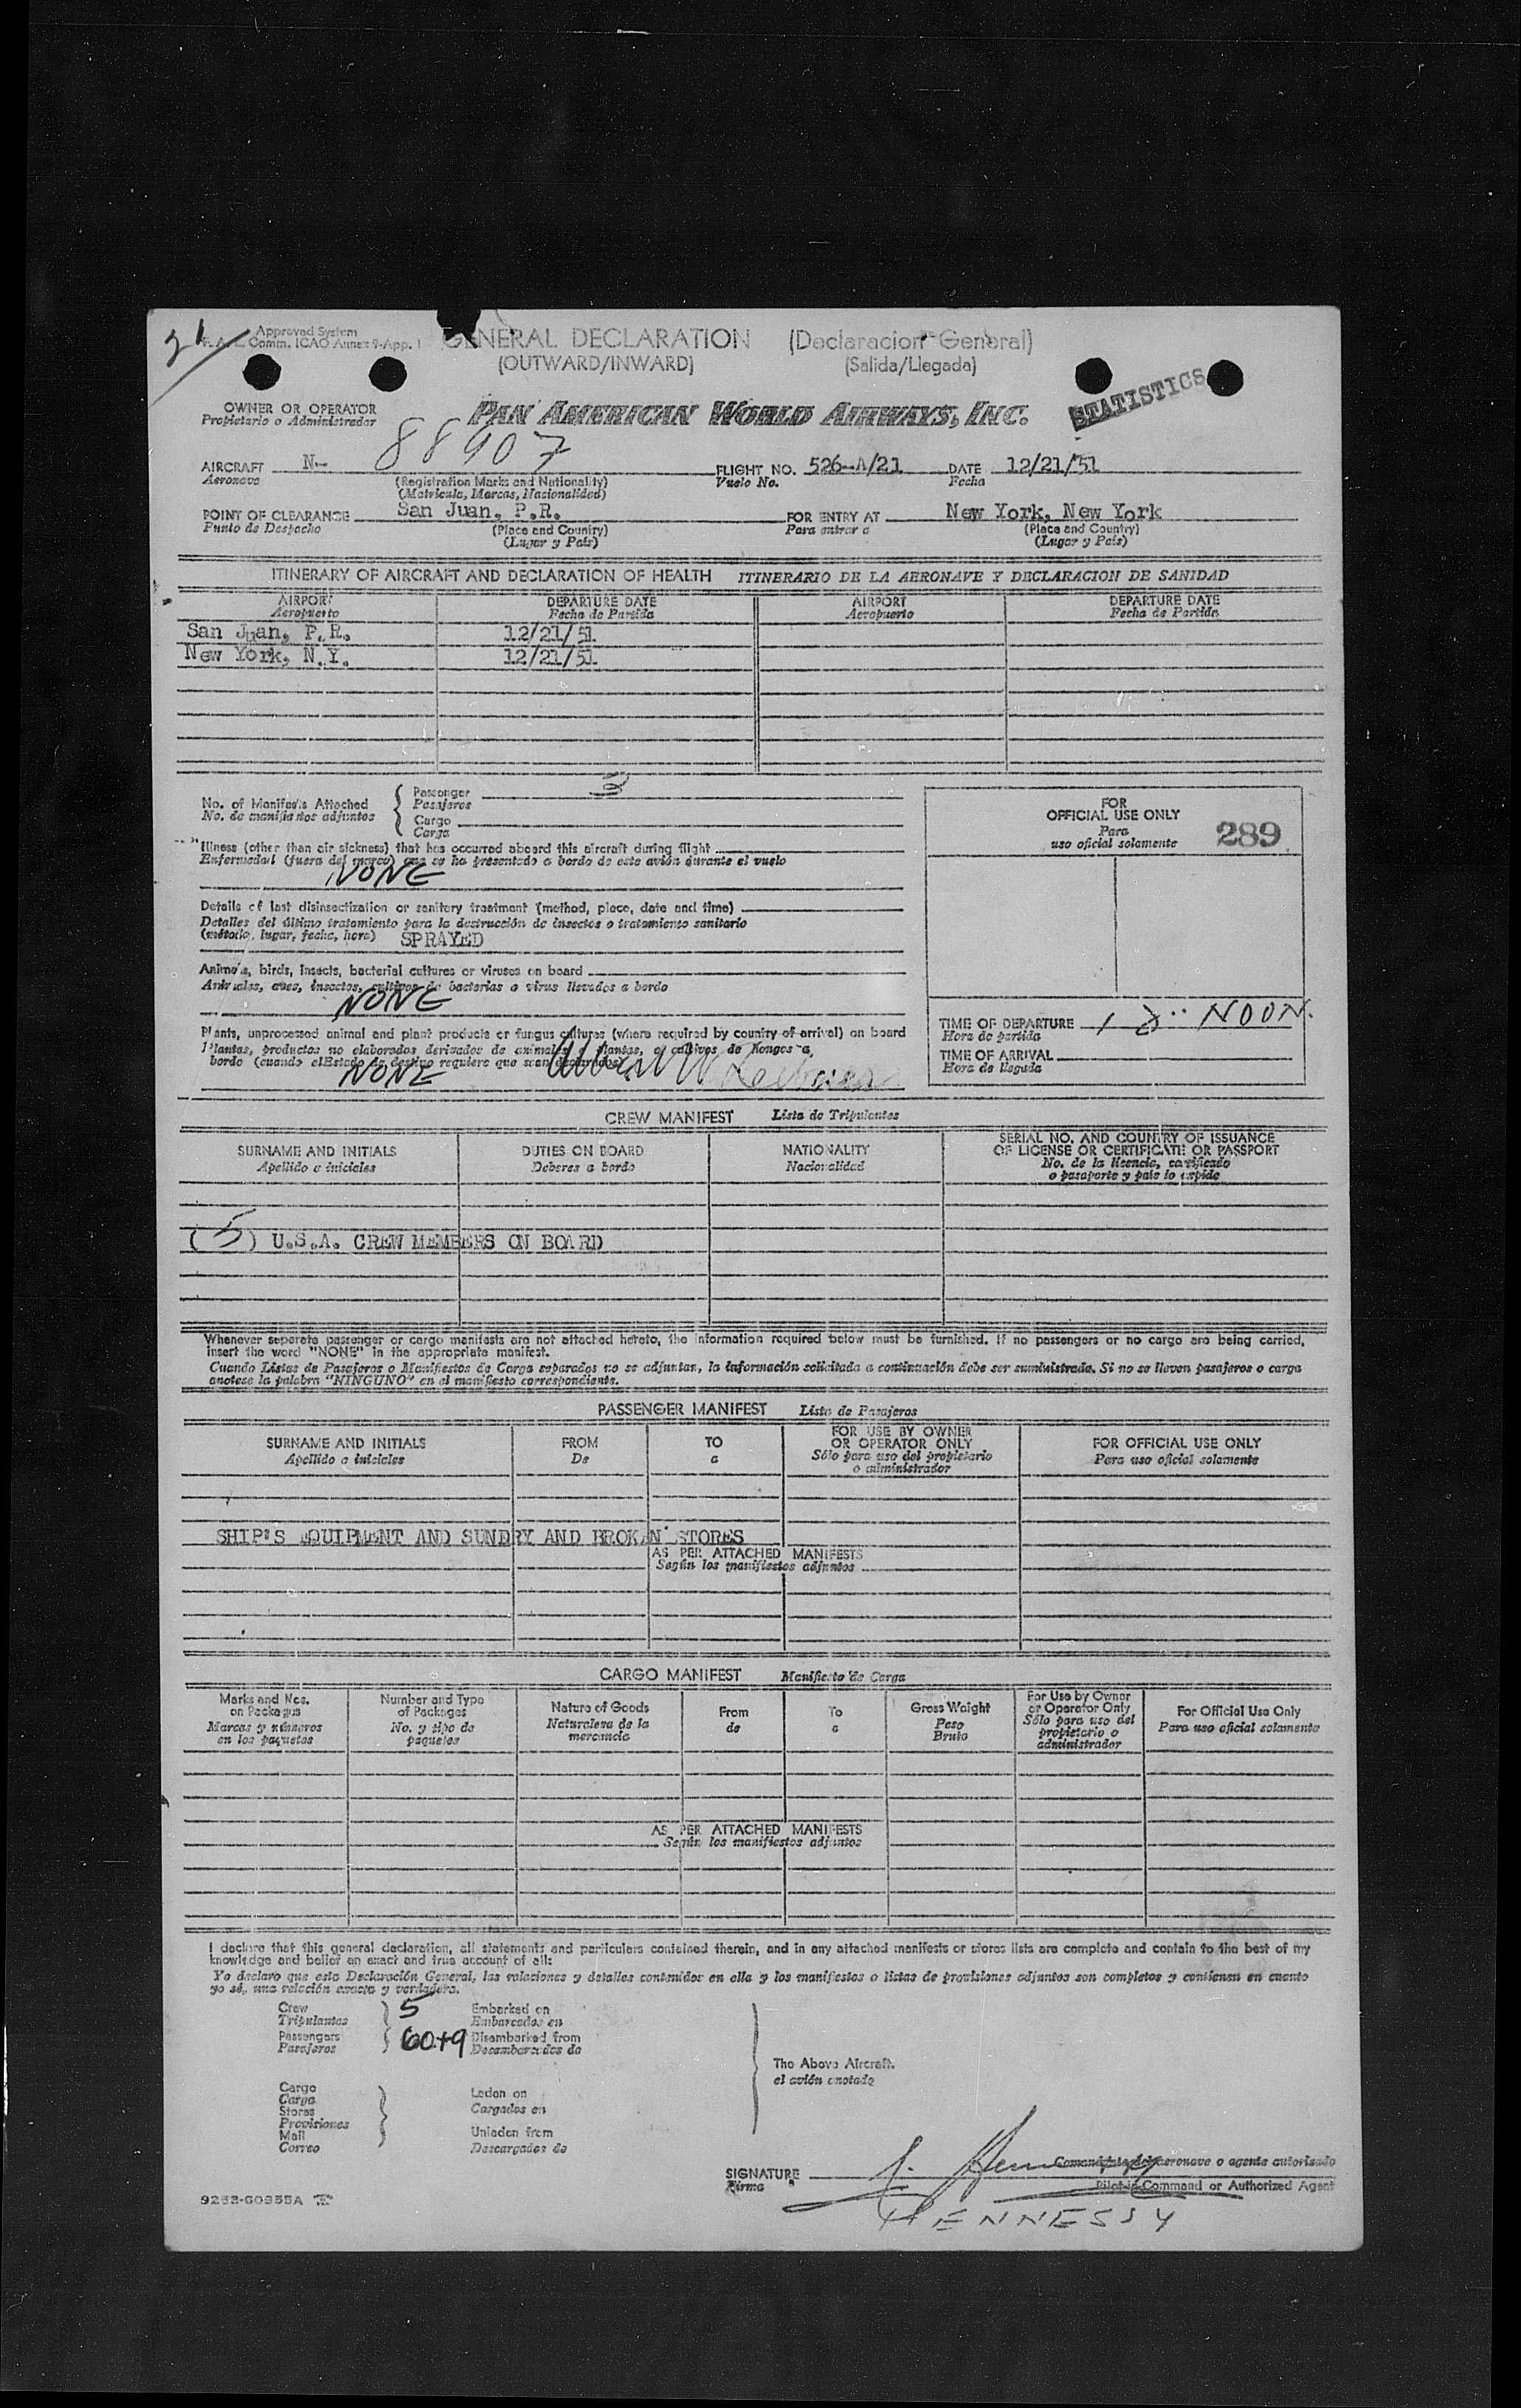 21
Approved System
Comm. ICAO Annex 9-App. 1
GENERAL DECLARATION (Declaracion General)
(OUTWARD/INWARD) (Salida/Llegada)
STATISTICS
OWNER OR OPERATOR PAN AMERICAN WORLD AIRWAYS, INC.
Propietario o Administrador
AIRCRAFT N- 88907 FLIGHT NO. 526-A/21 DATE 12/21/51
Aeronave (Registration Marks and Nationality) Vuelo No. Fecha
(Matricula, Marcas, Nacionalidad)
POINT OF CLEARANCE San Juan, P.R. FOR ENTRY AT New York, New York
Punto de Despacho (Place and Country) Para entrar a (Place and Country)
(Lugar y País) (Lugar y País)
ITINERARY OF AIRCRAFT AND DECLARATION OF HEALTH ITINERARIO DE LA AERONAVE Y DECLARACION DE SANIDAD
AIRPORT DEPARTURE DATE AIRPORT DEPARTURE DATE
Aeropuerto Fecha de Partida Aeropuerto Fecha de Partida
San Juan, P.R. 12/21/51
New York, N.Y. 12/21/51
No. of Manifests Attached
No. de manifiestos adjuntos
Passenger 3
Pasajeros
Cargo
Carga
FOR
OFFICIAL USE ONLY
Para
uso oficial solamente
289
Illness (other than air sickness) that has occurred aboard this aircraft during flight
Enfermedad (fuera del mareo) que se ha presentado a bordo de este avión durante el vuelo
NONE
Details of last disinsectization or sanitary treatment (method, place, date and time)
Detalles del último tratamiento para la destrucción de insectos o tratamiento sanitario
(método, lugar, fecha, hora) SPRAYED
Animals, birds, insects, bacterial cultures or viruses on board
Animales, aves, insectos, cultivos de bacterias o virus llevados a bordo
NONE
Plants, unprocessed animal and plant products or fungus cultures (where required by country of arrival) on board
Plantas, productos no elaborados derivados de animales, plantas, o cultivos de hongos a
bordo (cuando el Estado de destino requiere que sean declarados)
NONE
TIME OF DEPARTURE NOON.
Hora de partida
TIME OF ARRIVAL
Hora de llegada
CREW MANIFEST Lista de Tripulantes
SURNAME AND INITIALS DUTIES ON BOARD NATIONALITY SERIAL NO. AND COUNTRY OF ISSUANCE
OF LICENSE OR CERTIFICATE OR PASSPORT
Apellido e iniciales Deberes a bordo Nacionalidad No. de la licencia, certificado
o pasaporte y país lo expide
(5) U.S.A. CREW MEMBERS ON BOARD
Whenever separate passenger or cargo manifests are not attached hereto, the information required below must be furnished. If no passengers or no cargo are being carried,
insert the word "NONE" in the appropriate manifest.
Cuando Listas de Pasajeros o Manifiestos de Carga separados no se adjuntan, la información solicitada a continuación debe ser suministrada. Si no se lleven pasajeros o carga
anotese la palabra "NINGUNO" en el manifiesto correspondiente.
PASSENGER MANIFEST Lista de Pasajeros
SURNAME AND INITIALS FROM TO FOR USE BY OWNER
OR OPERATOR ONLY FOR OFFICIAL USE ONLY
Apellido e iniciales De a Sólo para uso del propietario
o administrador Para uso oficial solamente
SHIP'S EQUIPMENT AND SUNDRY AND BROKEN STORES
AS PER ATTACHED MANIFESTS
Según los manifiestos adjuntos
CARGO MANIFEST Manifiesto de Carga
Marks and Nos.
on Packages
Marcas y números
en los paquetes
Number and Type
of Packages
No. y tipo de
paquetes
Nature of Goods
Naturaleza de la
mercancia
From
de
To
a
Gross Weight
Peso
Bruto
For Use by Owner
or Operator Only
Sólo para uso del
propietario o
administrador
For Official Use Only
Para uso oficial solamente
AS PER ATTACHED MANIFESTS
Según los manifiestos adjuntos
I declare that this general declaration, all statements and particulars contained therein, and in any attached manifests or stores lists are complete and contain to the best of my
knowledge and belief an exact and true account of all:
Yo declaro que esta Declaración General, las relaciones y detalles contenidos en ella y los manifiestos o listas de provisiones adjuntos son completos y contienen en cuanto
yo sé, una relación exacta y verdadera.
Crew 5 Embarked on
Tripulantes Embarcados en
Passengers 60+9 Disembarked from
Pasajeros Desembarcados de
The Above Aircraft.
el avión anotado
Cargo
Carga Laden on
Stores Cargados en
Provisiones
Mail Unladen from
Correo Descargados de
SIGNATURE J. Hennessy Comandante de aeronave o agente autorizado
Firma Pilot in Command or Authorized Agent
HENNESSY
9252-G0355A